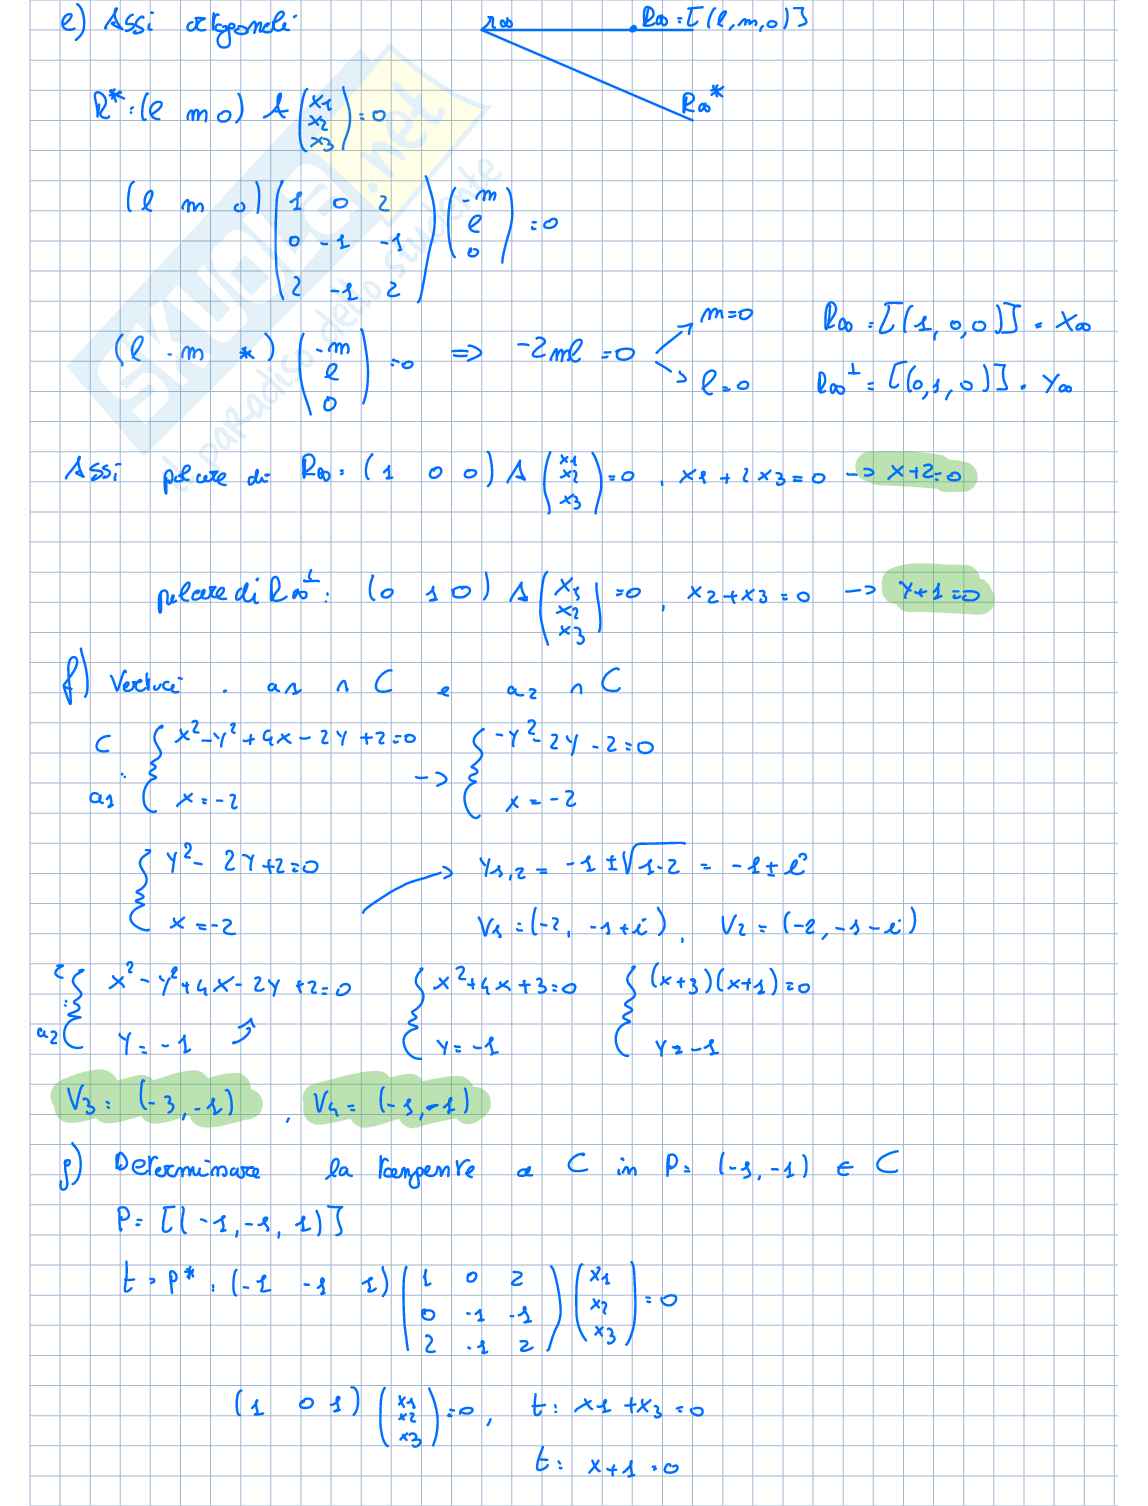 e) Assi ortogonali r∞ R∞ = [(l, m, 0)]
R∞*
R* : (l m 0) A (x1 x2 x3) = 0
(l m 0) (1 0 2 / 0 -1 -1 / 2 -1 2) (-m l 0) = 0
(l -m *) (-m l 0) = 0 => -2ml = 0
m = 0 R∞ = [(1, 0, 0)] = X∞
l = 0 R∞⊥ = [(0, 1, 0)] = Y∞
Assi polare di R∞ : (1 0 0) A (x1 x2 x3) = 0 , x1 + 2x3 = 0 -> x+2=0
polare di R∞⊥ : (0 1 0) A (x1 x2 x3) = 0 , x2 + x3 = 0 -> y+1=0
f) Vertici : a1 ∩ C e a2 ∩ C
C : a1 { x² - y² + 4x - 2y + 2 = 0 -> { -y² - 2y - 2 = 0
x = -2 x = -2
{ y² - 2y + 2 = 0 -> y1,2 = -1 ± √1-2 = -1 ± i
x = -2 V1 = (-2, -1+i) , V2 = (-2, -1-i)
C : a2 { x² - y² + 4x - 2y + 2 = 0 { x² + 4x + 3 = 0 { (x+3)(x+1) = 0
y = -1 y = -1 y = -1
V3 = (-3, -1) , V4 = (-1, -1)
g) Determinare la tangente a C in P = (-1, -1) ∈ C
P = [(-1, -1, 1)]
t = P* : (-1 -1 1) (1 0 2 / 0 -1 -1 / 2 -1 2) (x1 x2 x3) = 0
(1 0 1) (x1 x2 x3) = 0 , t: x1 + x3 = 0
t: x+1 = 0
SKUOLA.net
il paradiso dello studente